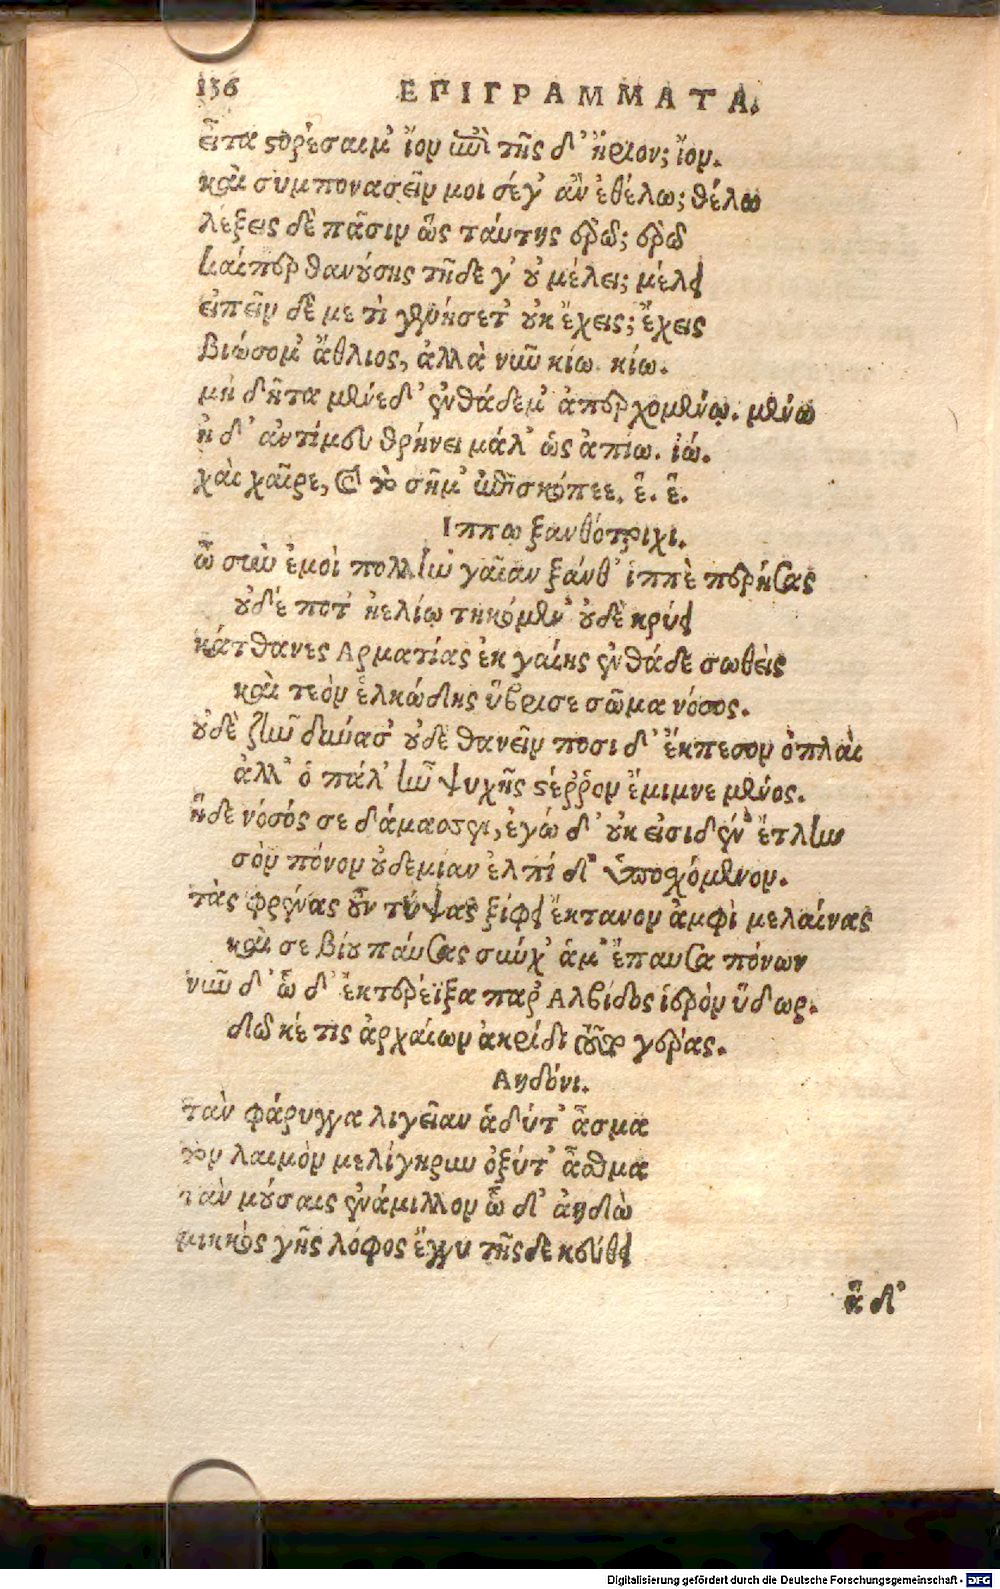 136 ΕΠΙΓΡΑΜΜΑΤΑ.
εἶτα στορέσαιμ' ἴον ἐπὶ τῆς δ' ἤριον; ἴον.
καὶ συμπονασεῖν μοι σέγ' ἂν ἐθέλω; θέλω
λέξεις δὲ πᾶσιν ὣς ταύτης ἐρῶ; ἐρῶ
καίπερ θανούσης τῆδε γ' οὐ μέλει; μέλει
εἰπεῖν δὲ με τὶ χρήσετ' οὐκ ἔχεις; ἔχεις
βιώσομ' ἄθλιος, ἀλλὰ νῦν κίω. κίω.
μὴ δῆτα μένεδ' ἐνθάδεμ' ἀπερχομένῳ. μένω
ἠ δ' ἀντίμευ θρήνει μάλ' ὡς ἀπίω. ἰώ.
χαὶ χαῖρε, καὶ τὸ σῆμ' ἐπισκόπεε. ἓ. ἓ.
Ιππω ξανθότριχι.
ὦ σὺν ἐμοὶ πολλὴν γαῖαν ξάνθ' ἱππὲ περήσας
οὐδέ ποτ' ἠελίῳ τηκόμεν' οὐδὲ κρύει
κάτθανες Αρματίας ἐκ γαίης ἐνθάδε σωθεὶς
καὶ τεὸν ἑλκώδης ὕβρισε σῶμα νόσος.
οὐδὲ ζῆν δύνασ' οὐδὲ θανεῖν ποσι δ' ἔκπεσον ὁπλαὶ
ἀλλ' ὁ πάλ' ἦν ψυχῆς στέῤῥον ἔμιμνε μένος.
ἥδε νόσός σε δάμασσεν, ἐγώ δ' οὐκ εἰσιδεῖν ἔτλην
σὸν πόνον οὐδεμιαν ἐλπίδ' ὑποσχόμενον.
τὰς φρένας οὖν τύψας ξίφει ἔκτανον ἀμφὶ μελαίνας
καὶ σε βίου παύσας σύγχ' ἁμ' ἔπαυσα πόνων
νῦν δ' ὧδ' ἐκτερέϊξα παρ' Αλβίδος ἱερὸν ὕδωρ.
δῶκέ τις ἀρχαίων ἀκρίδι γέρας.
Αηδόνι.
τὰν φάρυγγα λιγεῖαν ἁδύτ' ἆσμα
τὸν λαιμὸν μελίγηρυν ὀξύτ' ἆσθμα
τὰν μούσαις ἐνάμιλλον ὧδ' ἀηδὼ
μικκὸς γῆς λόφος ἔγγυ τῆσδε κεύθει
ἃ δ'
Digitalisierung gefördert durch die Deutsche Forschungsgemeinschaft - DFG